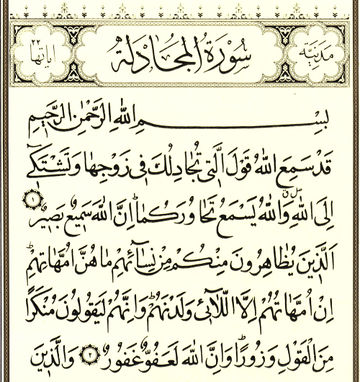 مدنية سورة المجادلة آياتها ٢٢
بِسْمِ اللهِ الرَّحْمٰنِ الرَّحِيمِ
قَدْ سَمِعَ اللهُ قَوْلَ الَّتِي تُجَادِلُكَ فِي زَوْجِهَا وَتَشْتَكِي
إِلَى اللهِ وَاللهُ يَسْمَعُ تَحَاوُرَكُمَا إِنَّ اللهَ سَمِيعٌ بَصِيرٌ ١
الَّذِينَ يُظَاهِرُونَ مِنْكُمْ مِنْ نِسَائِهِمْ مَا هُنَّ أُمَّهَاتِهِمْ
إِنْ أُمَّهَاتُهُمْ إِلَّا اللَّائِي وَلَدْنَهُمْ وَإِنَّهُمْ لَيَقُولُونَ مُنْكَرًا
مِنَ الْقَوْلِ وَزُورًا وَإِنَّ اللهَ لَعَفُوٌّ غَفُورٌ ٢ وَالَّذِينَ